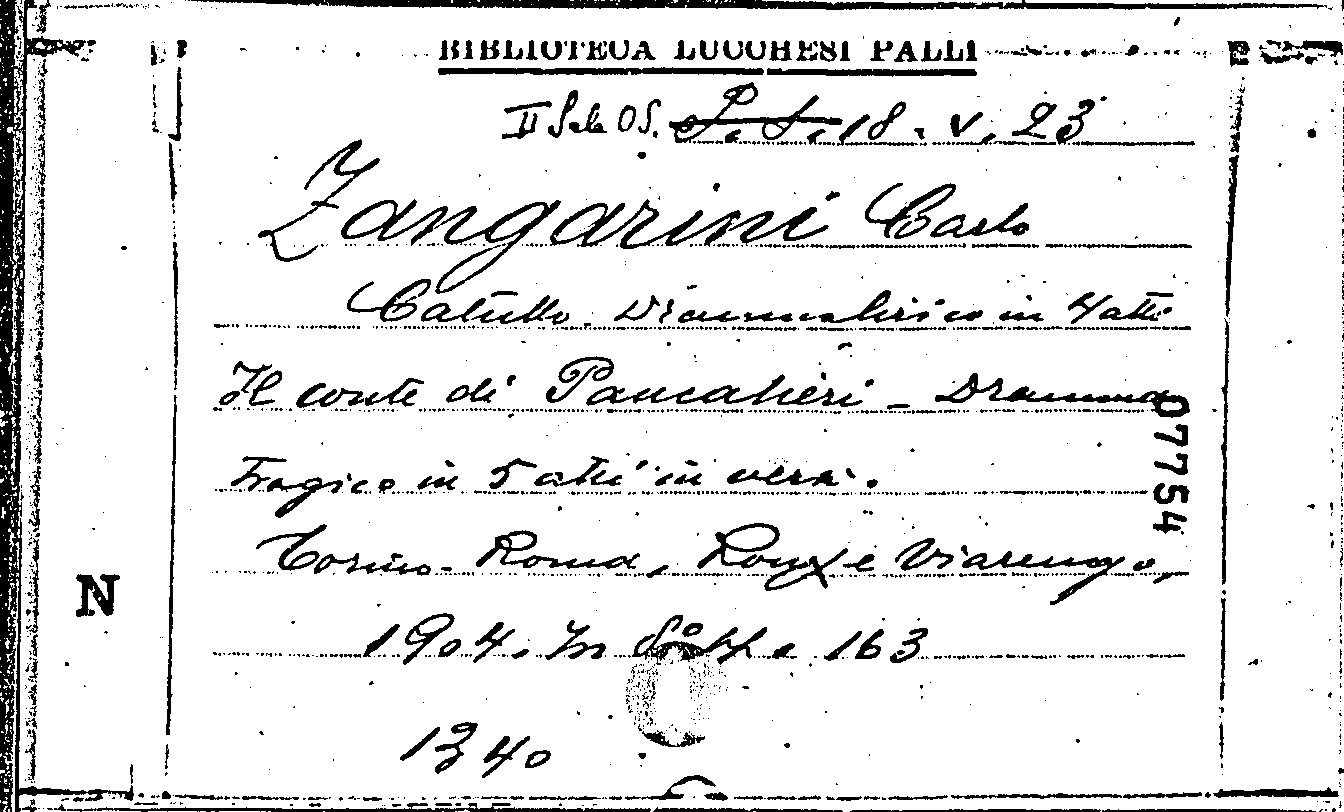 BIBLIOTECA LUCCHESI PALLI
II Sala OS. P. S. 18. V. 23
Zangarini Carlo
Catullo. Dramma lirico in 4 atti
Il conte di Pancalieri - Dramma
Tragico in 5 atti in versi.
07754
Torino-Roma, Roux e Viarengo,
N
1904. In 8º pp. 163
1340